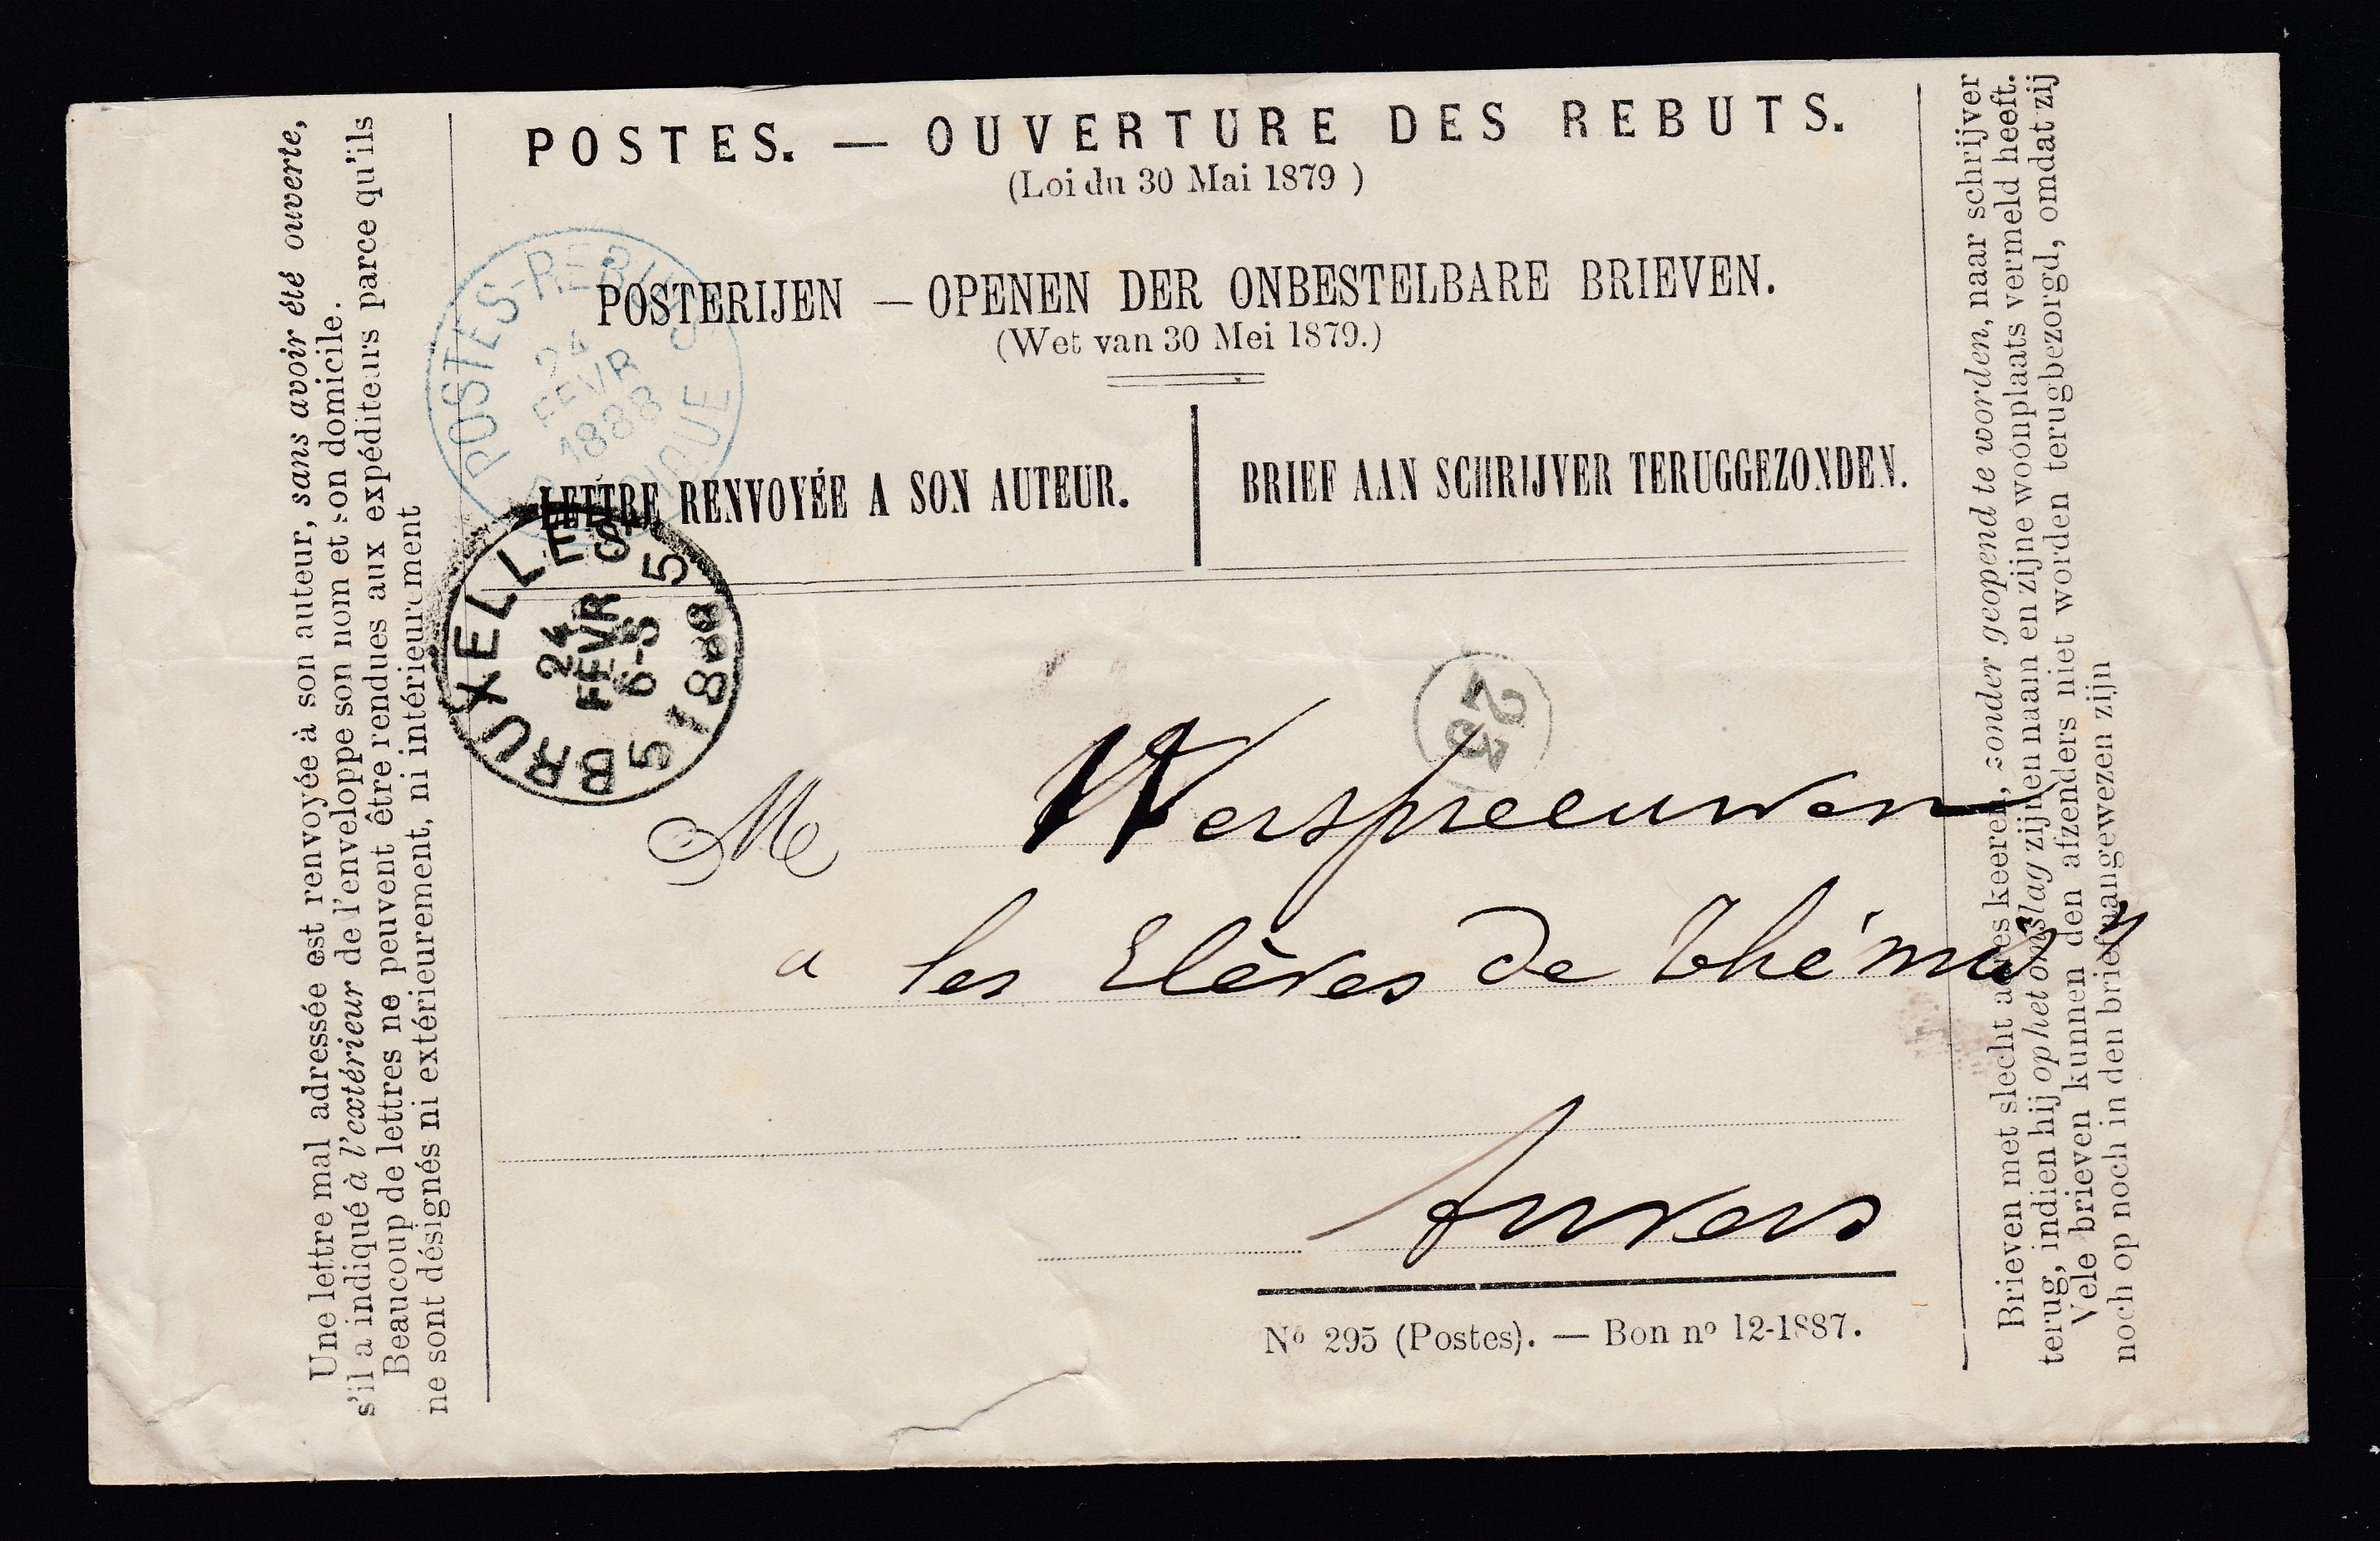 POSTES. — OUVERTURE DES REBUTS.
(Loi du 30 Mai 1879 )
POSTERIJEN — OPENEN DER ONBESTELBARE BRIEVEN.
(Wet van 30 Mei 1879.)
LETTRE RENVOYÉE A SON AUTEUR.
BRIEF AAN SCHRIJVER TERUGGEZONDEN.
POSTES-REBUTS
24
FEVR
1888
BELGIQUE
BRUXELLES
24
FEVR
6-S
5 1888 5
M Werspreeuwen
a les Elèves de Thémis
Anvers
Nº 295 (Postes). — Bon nº 12-1887.
Une lettre mal adressée est renvoyée à son auteur, sans avoir été ouverte,
s'il a indiqué à l'extérieur de l'enveloppe son nom et son domicile.
Beaucoup de lettres ne peuvent être rendues aux expéditeurs parce qu'ils
ne sont désignés ni extérieurement, ni intérieurement
Brieven met slecht adres keeren, zonder geopend te worden, naar schrijver
terug, indien hij op het omslag zijnen naam en zijne woonplaats vermeld heeft.
Vele brieven kunnen den afzenders niet worden terugbezorgd, omdat zij
noch op noch in den brief aangewezen zijn